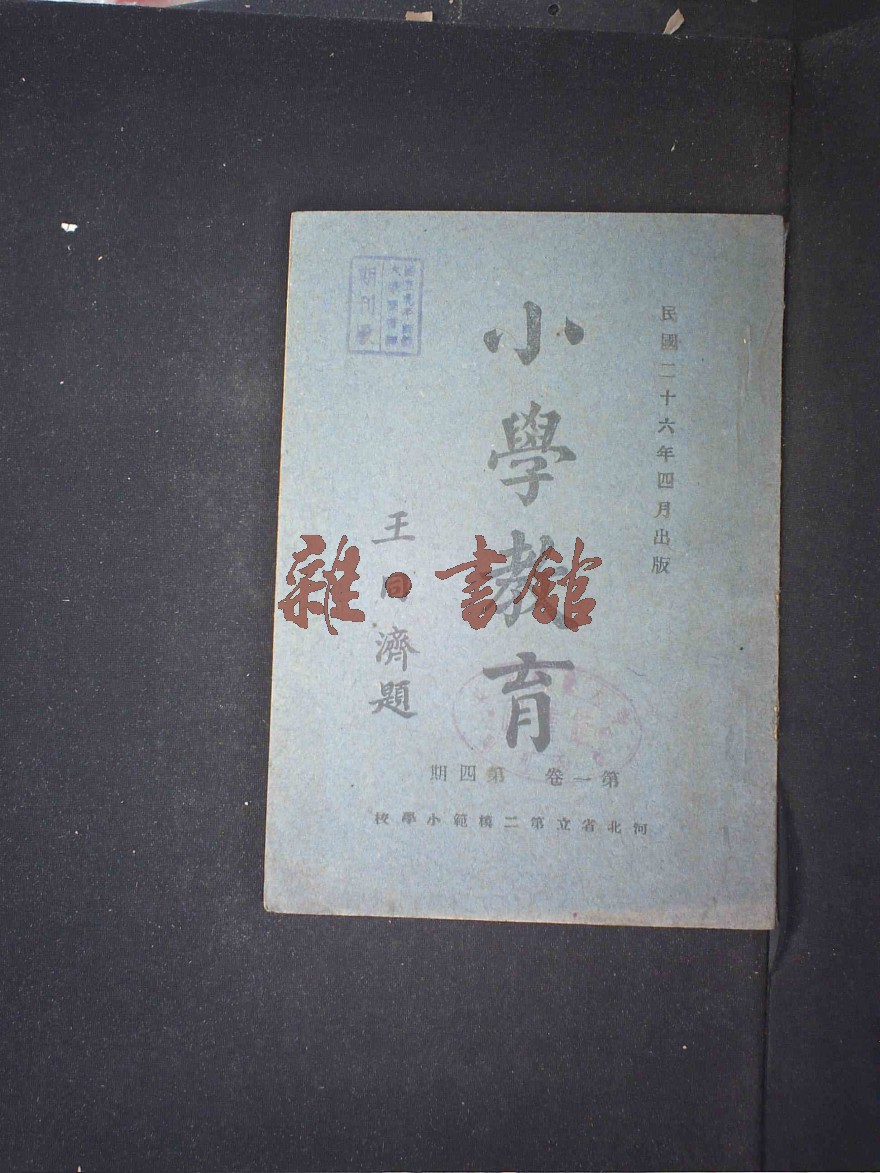 民國二十六年四月出版
小學教育
王同濟題
第一卷 第四期
河北省立第二模範小學校
期刊
雜·書館